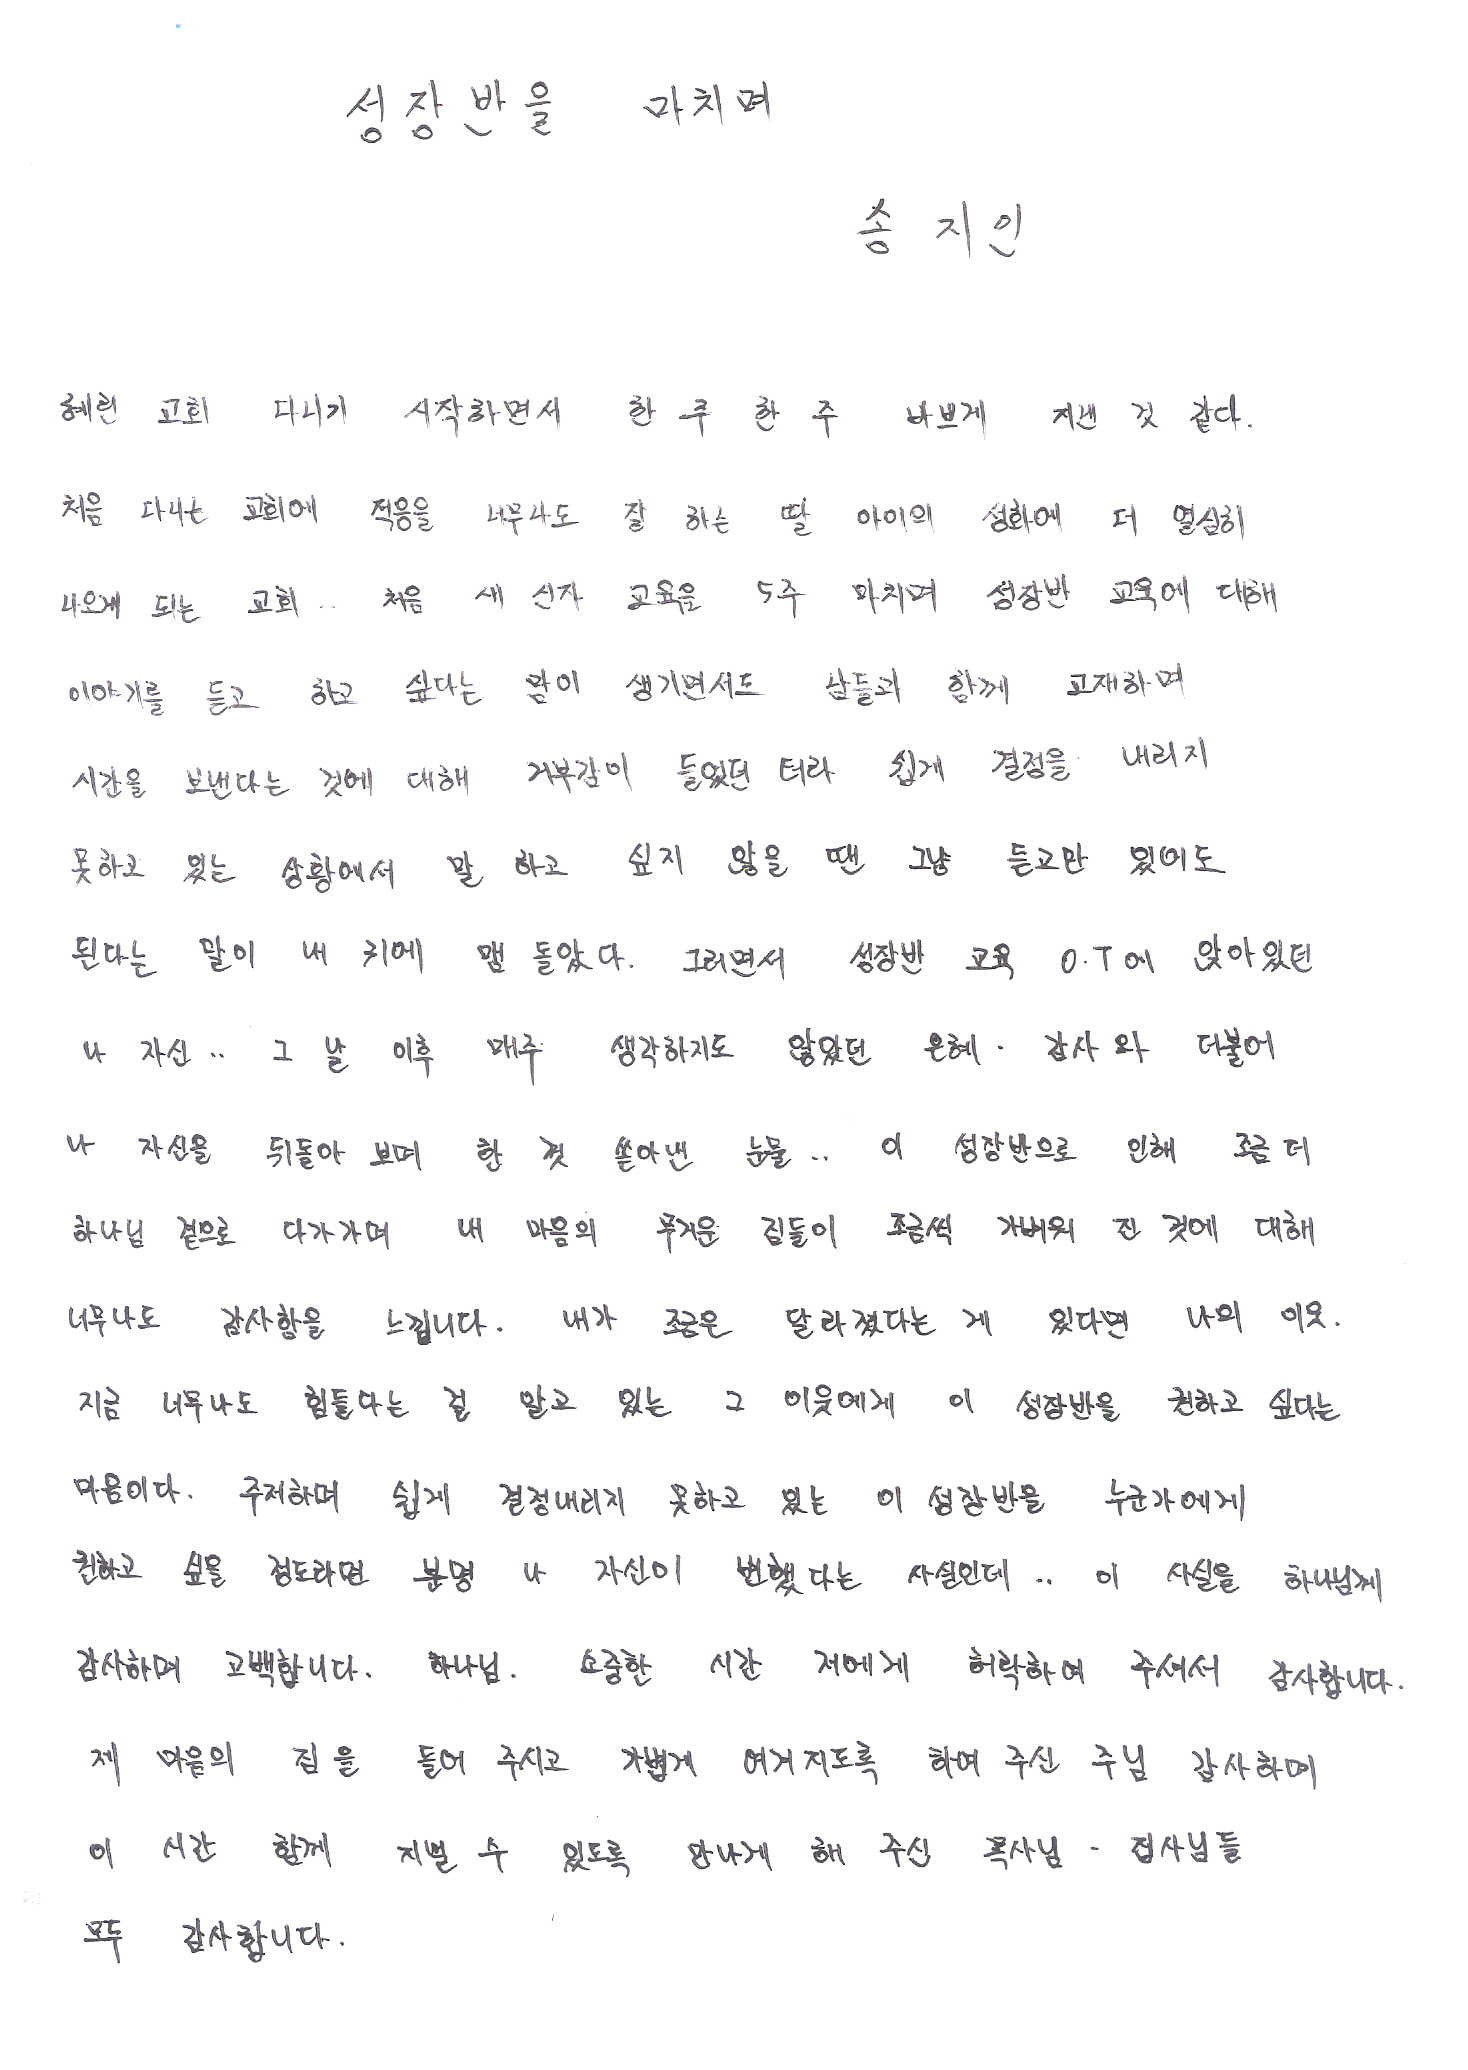 성장반을 마치며
송지인
혜린 교회 다니기 시작하면서 한 주 한 주 바쁘게 지낸 것 같다.
처음 다니는 교회에 적응을 너무나도 잘 하는 딸 아이의 성화에 더 열심히
나오게 되는 교회.. 처음 새 신자 교육을 5주 마치며 성장반 교육에 대해
이야기를 듣고 하고 싶다는 맘이 생기면서도 남들과 함께 교재하며
시간을 보낸다는 것에 대해 거부감이 들었던 터라 쉽게 결정을 내리지
못하고 있는 상황에서 말 하고 싶지 않을 땐 그냥 듣고만 있어도
된다는 말이 내 귀에 맴 돌았다. 그러면서 성장반 교육 O.T에 앉아있던
나 자신.. 그 날 이후 매주 생각하지도 않았던 은혜. 감사와 더불어
나 자신을 뒤돌아 보며 한 껏 쏟아낸 눈물.. 이 성장반으로 인해 조금 더
하나님 곁으로 다가가며 내 마음의 무거운 짐들이 조금씩 가벼워 진 것에 대해
너무나도 감사함을 느낍니다. 내가 조금은 달라졌다는 게 있다면 나의 이웃.
지금 너무나도 힘들다는 걸 알고 있는 그 이웃에게 이 성장반을 권하고 싶다는
마음이다. 주저하며 쉽게 결정내리지 못하고 있는 이 성장반을 누군가에게
권하고 싶을 정도라면 분명 나 자신이 변했다는 사실인데.. 이 사실을 하나님께
감사하며 고백합니다. 하나님. 소중한 시간 저에게 허락하여 주셔서 감사합니다.
제 마음의 짐을 들어 주시고 가볍게 여겨지도록 하여 주신 주님 감사하며
이 시간 함께 지낼 수 있도록 만나게 해 주신 목사님 - 집사님들
모두 감사합니다.